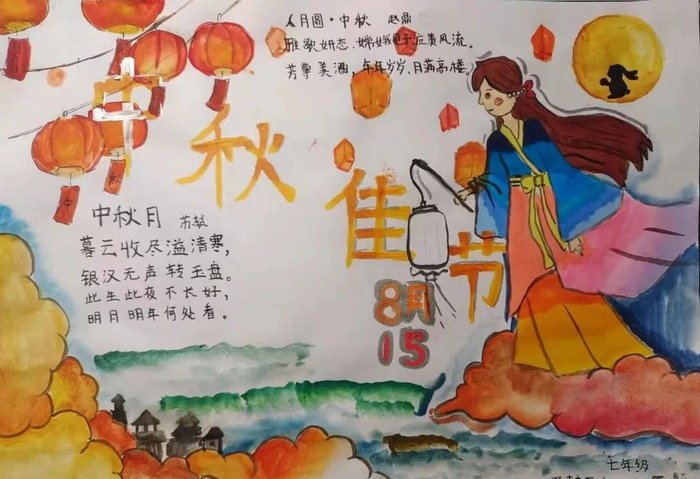 人月圆·中秋 赵鼎
雅歌妍态,嫦娥见了,应羡风流。
芳尊美酒,年年岁岁,月满高楼。
中秋佳节
8月
15
中秋月 苏轼
暮云收尽溢清寒,
银汉无声转玉盘。
此生此夜不长好,
明月明年何处看。
七年级